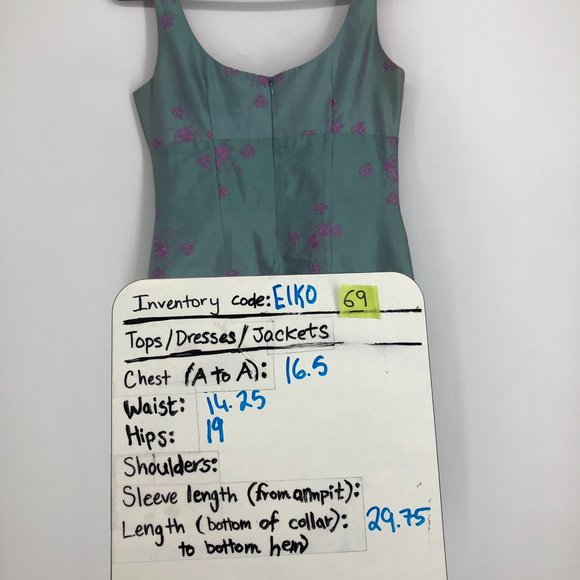 Inventory code: EIKO 69
Tops/Dresses/Jackets
Chest (A to A): 16.5
Waist: 14.25
Hips: 19
Shoulders:
Sleeve length (from armpit):
Length (bottom of collar): 29.75
to bottom hem)